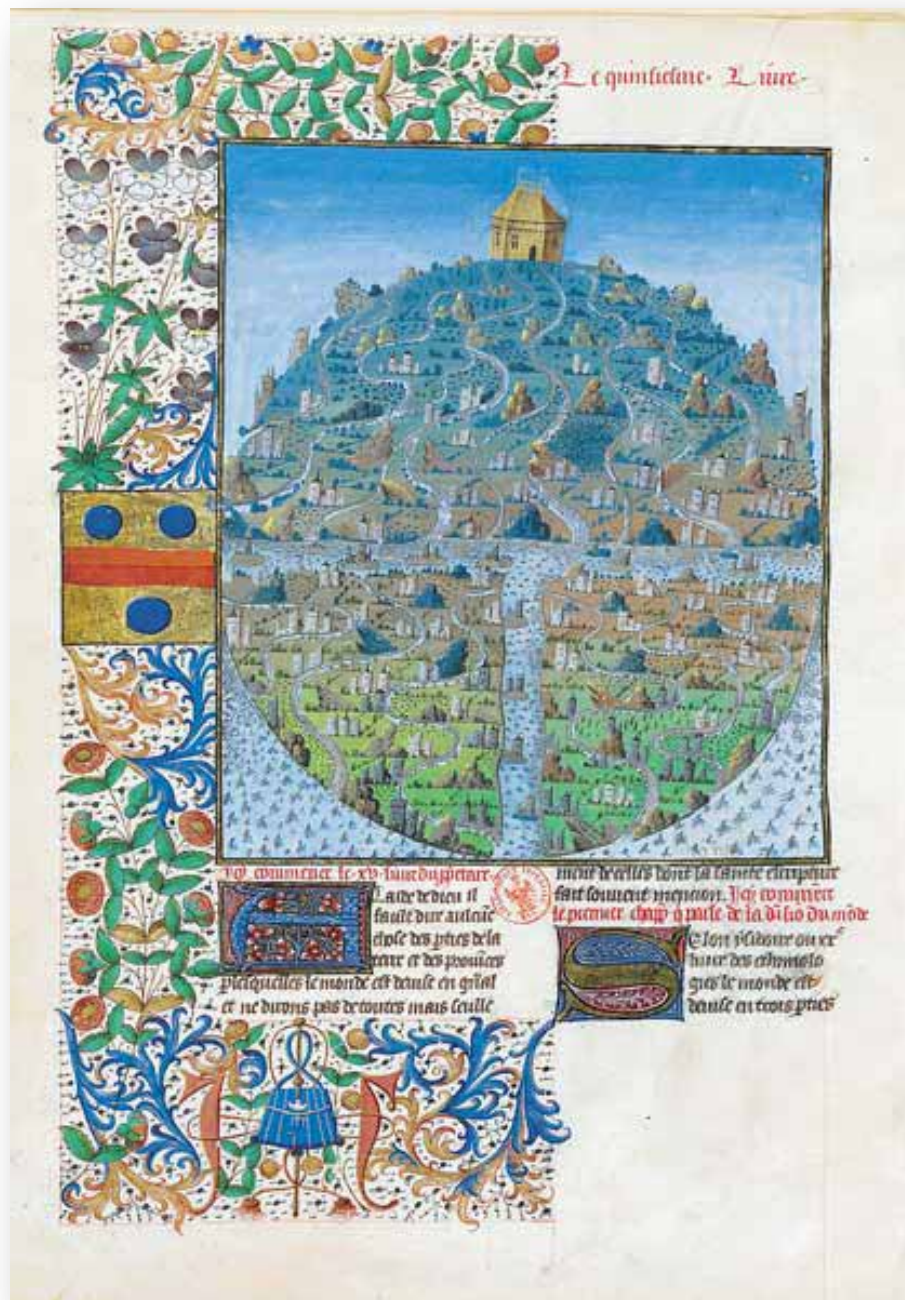 Le quinsiesme. Liure.
Icy commence le xv. liure du ppetaire
A laide de dieu il
fault dire aulcune
chose des pties de la
terre et des prouinces
p lesquelles le monde est deuise en gnal
et ne dirons pas de toutes mais seulle
ment de celles dont la sainte escripture
fait souuent mencion. Icy commence
le premier chap q parle de la diuisio du mode
Selon ysidoire ou xve
liure des ethimolo
gies le monde est
deuise en trois pties